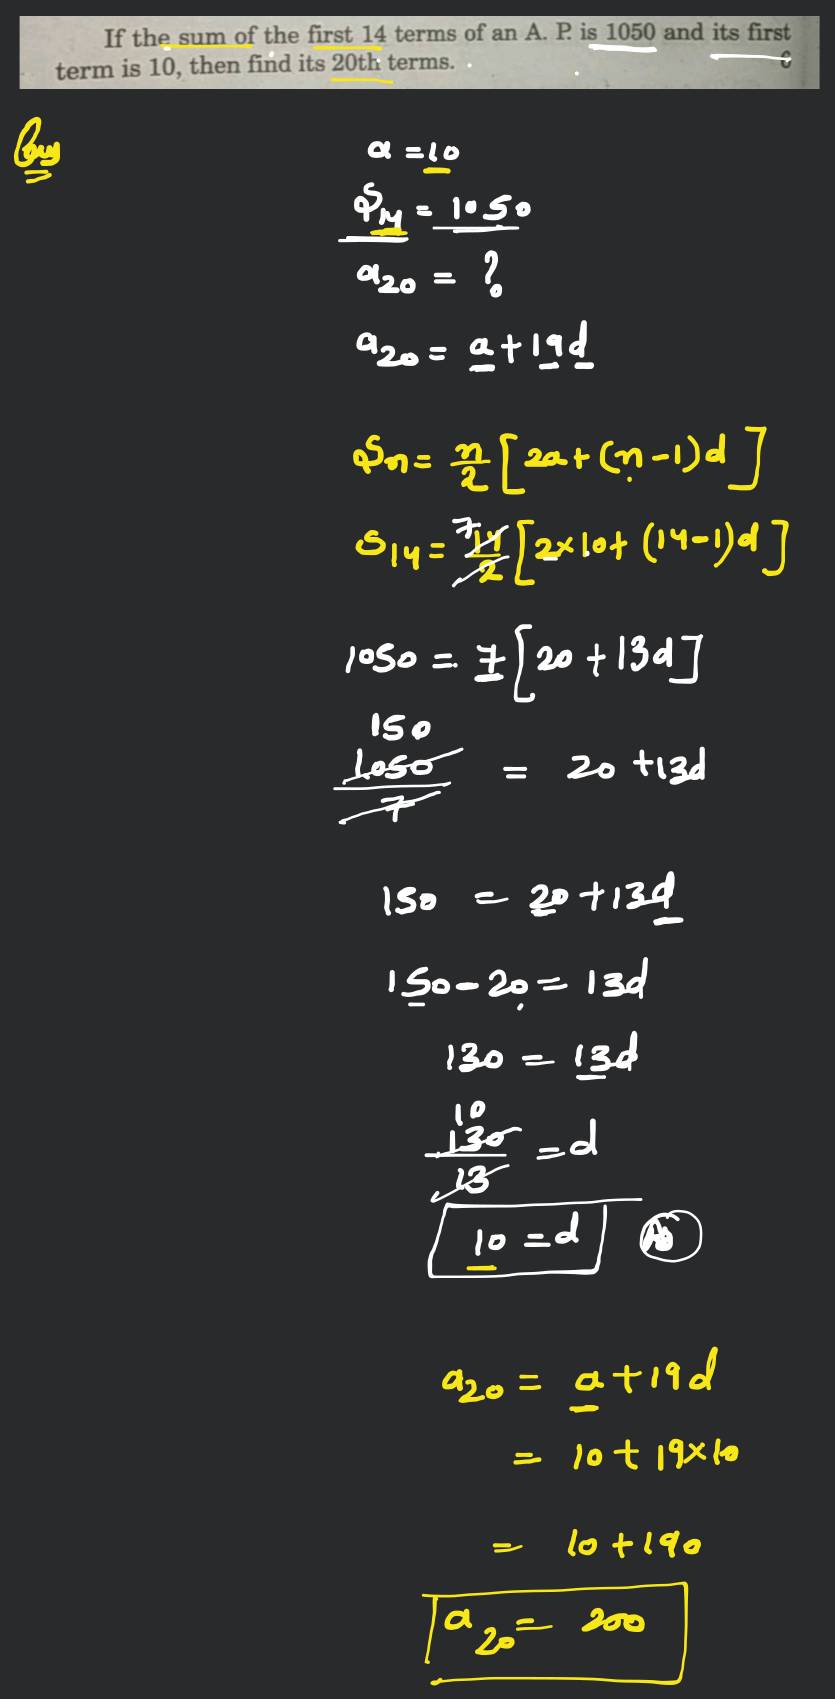 If the sum of the first 14 terms of an A. P. is 1050 and its first
term is 10, then find its 20th terms. 6
a = 10
S14 = 1050
a20 = ?
a20 = a + 19d
Sn = n/2 [2a + (n-1)d]
S14 = 14/2 7 [2×10 + (14-1)d]
1050 = 7[20 + 13d]
150
1050/7 = 20 + 13d
150 = 20 + 13d
150 - 20 = 13d
130 = 13d
10
130/13 = d
10 = d
a20 = a + 19d
= 10 + 19×10
= 10 + 190
a20 = 200